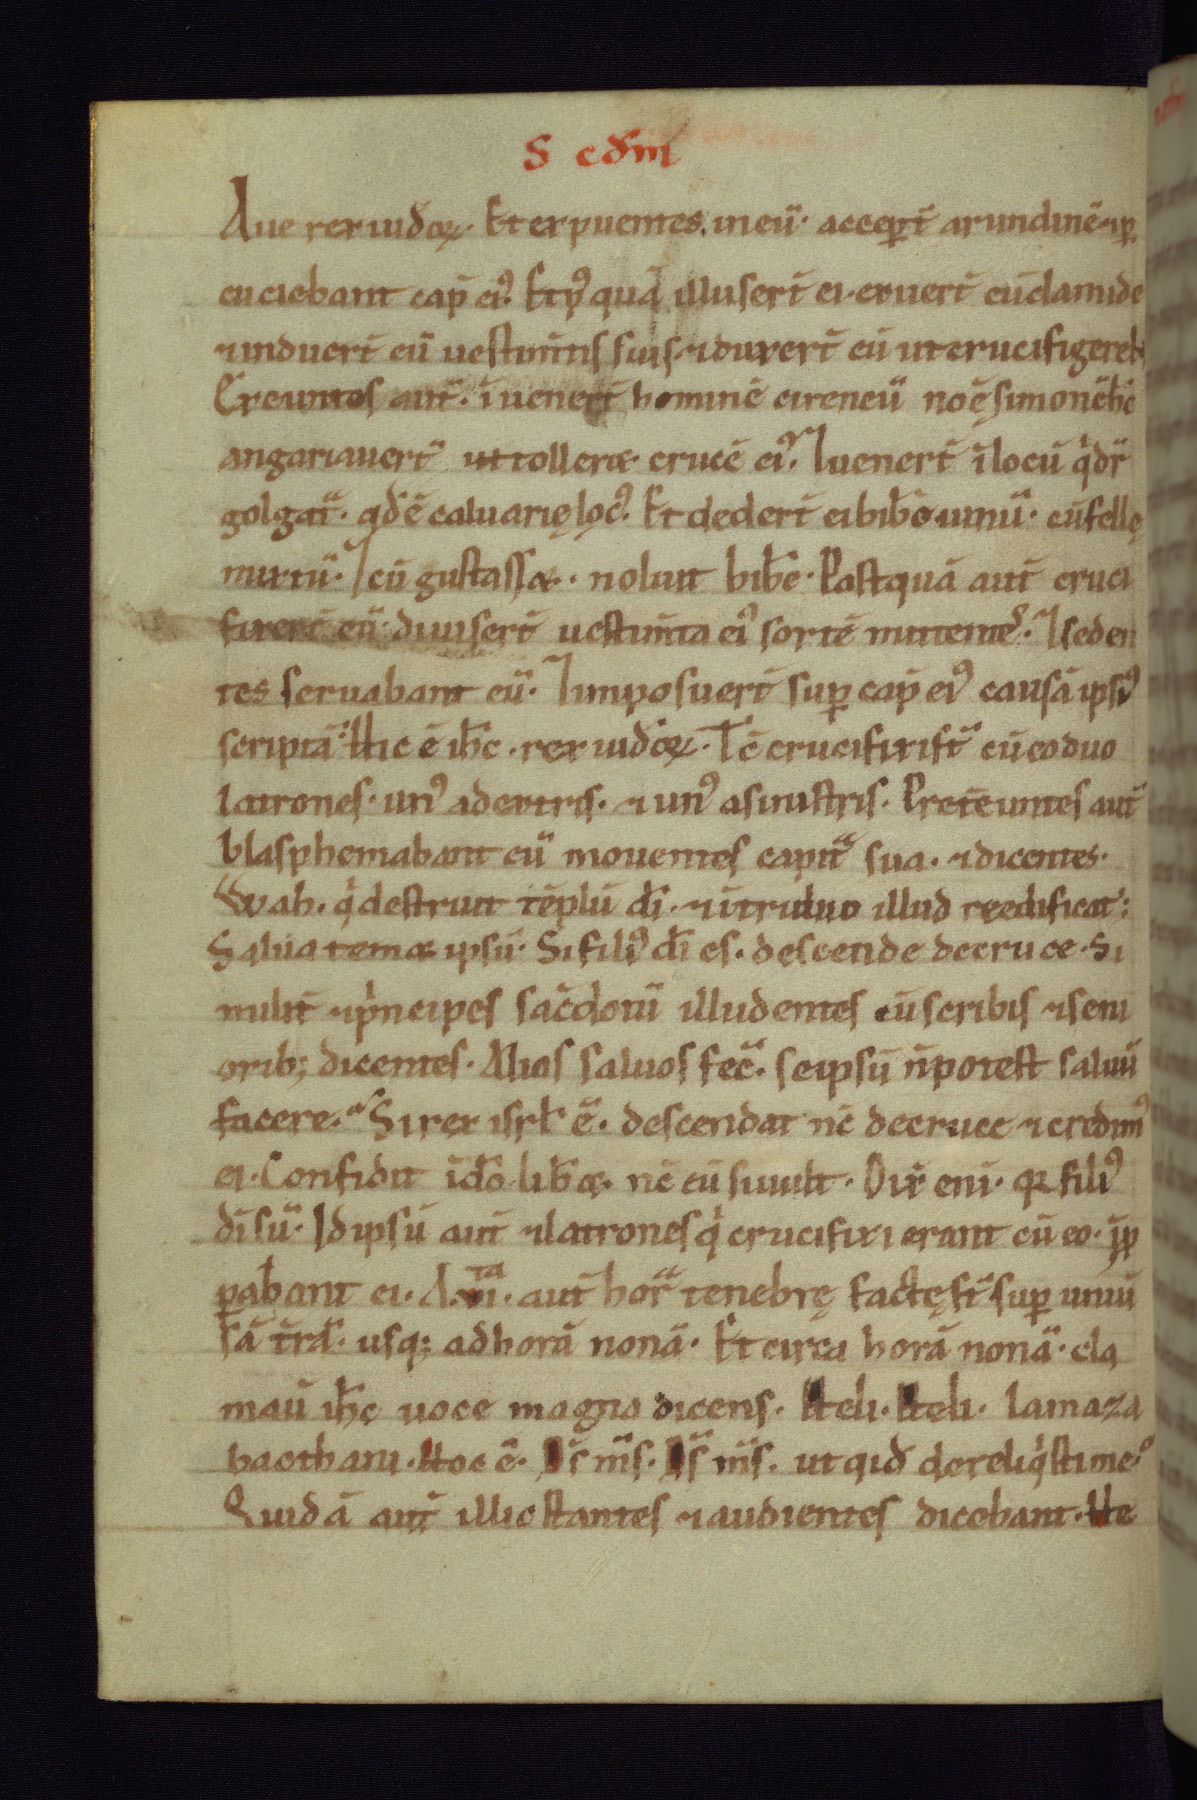 S cđm
Aue rex iudoꝝ. Et expuentes in eū. acceper̄t arundinē ⁊ ꝑ
cuciebant cap̄ ei᾽. Et p᾽quā illuser̄t ei. exuer̄t eū clamide
⁊ induer̄t eū uestim̄tis suis ⁊ duxer̄t eū ut crucifigeret.
Exeuntes aut̄. īuener̄t hominē cireneū noē simonē. hc̄
angariauer̄t ut tolleret crucē ei᾽. ⁊ uener̄t ī locū q dr̄
golgat̄. qđ ē caluarię loc᾽. Et deder̄t ei bib̄e uinū. cū fellę
mixtū. ⁊ cū gustasset. noluit bib̄e. Postquā aut̄ cruci
fixer̄t eū. diuiser̄t uestim̄ta ei᾽ sortē mittentes. ⁊ seden
tes seruabant eū. ⁊ imposuer̄t suꝑ cap̄ ei᾽ causā ipsi᾽
scriptā. Hic ē ih̄c. rex iudoꝝ. Tc̄ crucifixi st̄ cū eo duo
latrones. un᾽ a dextris. ⁊ un᾽ a sinistris. Pretēuntes aut̄
blasphemabant eū mouentes capita sua. ⁊ dicentes.
Wah. q destruit tēplū dī. ⁊ ī triduo illud reedificat:
Salua temet ipsū. Si fili᾽ dī es. descende de cruce. Si
milit̄ ⁊ pncipes sac̄dotū illudentes cū scribis ⁊ seni
orib; dicentes. Alios saluos fec̄. se ipsū n̄ potest saluū
facere. Si rex isrl̄ ē. descendat nc̄ de cruce ⁊ credim᾽
ei. Confidit ī dō. lib̄et nc̄ eū si uult. Dix̄ eni. qꝛ fili᾽
dī sū. Idipsū aut̄ ⁊ latrones q crucifixi erant cū eo. īꝓ
ꝑabant ei. A .vi.ta aut̄ hora tenebrę factę st̄ suꝑ uniū
sā t̄rā. usq; ad horā nonā. Et circa horā nonā. cla
mau̅ ih̄c uoce magna dicens. Heli. Heli. lamaza
bacthani. Hoc ē. Ds̄ ms̄. Ds̄ ms̄. ut qid dereliqsti me?
Quidā aut̄ illic stantes ⁊ audientes dicebant. He